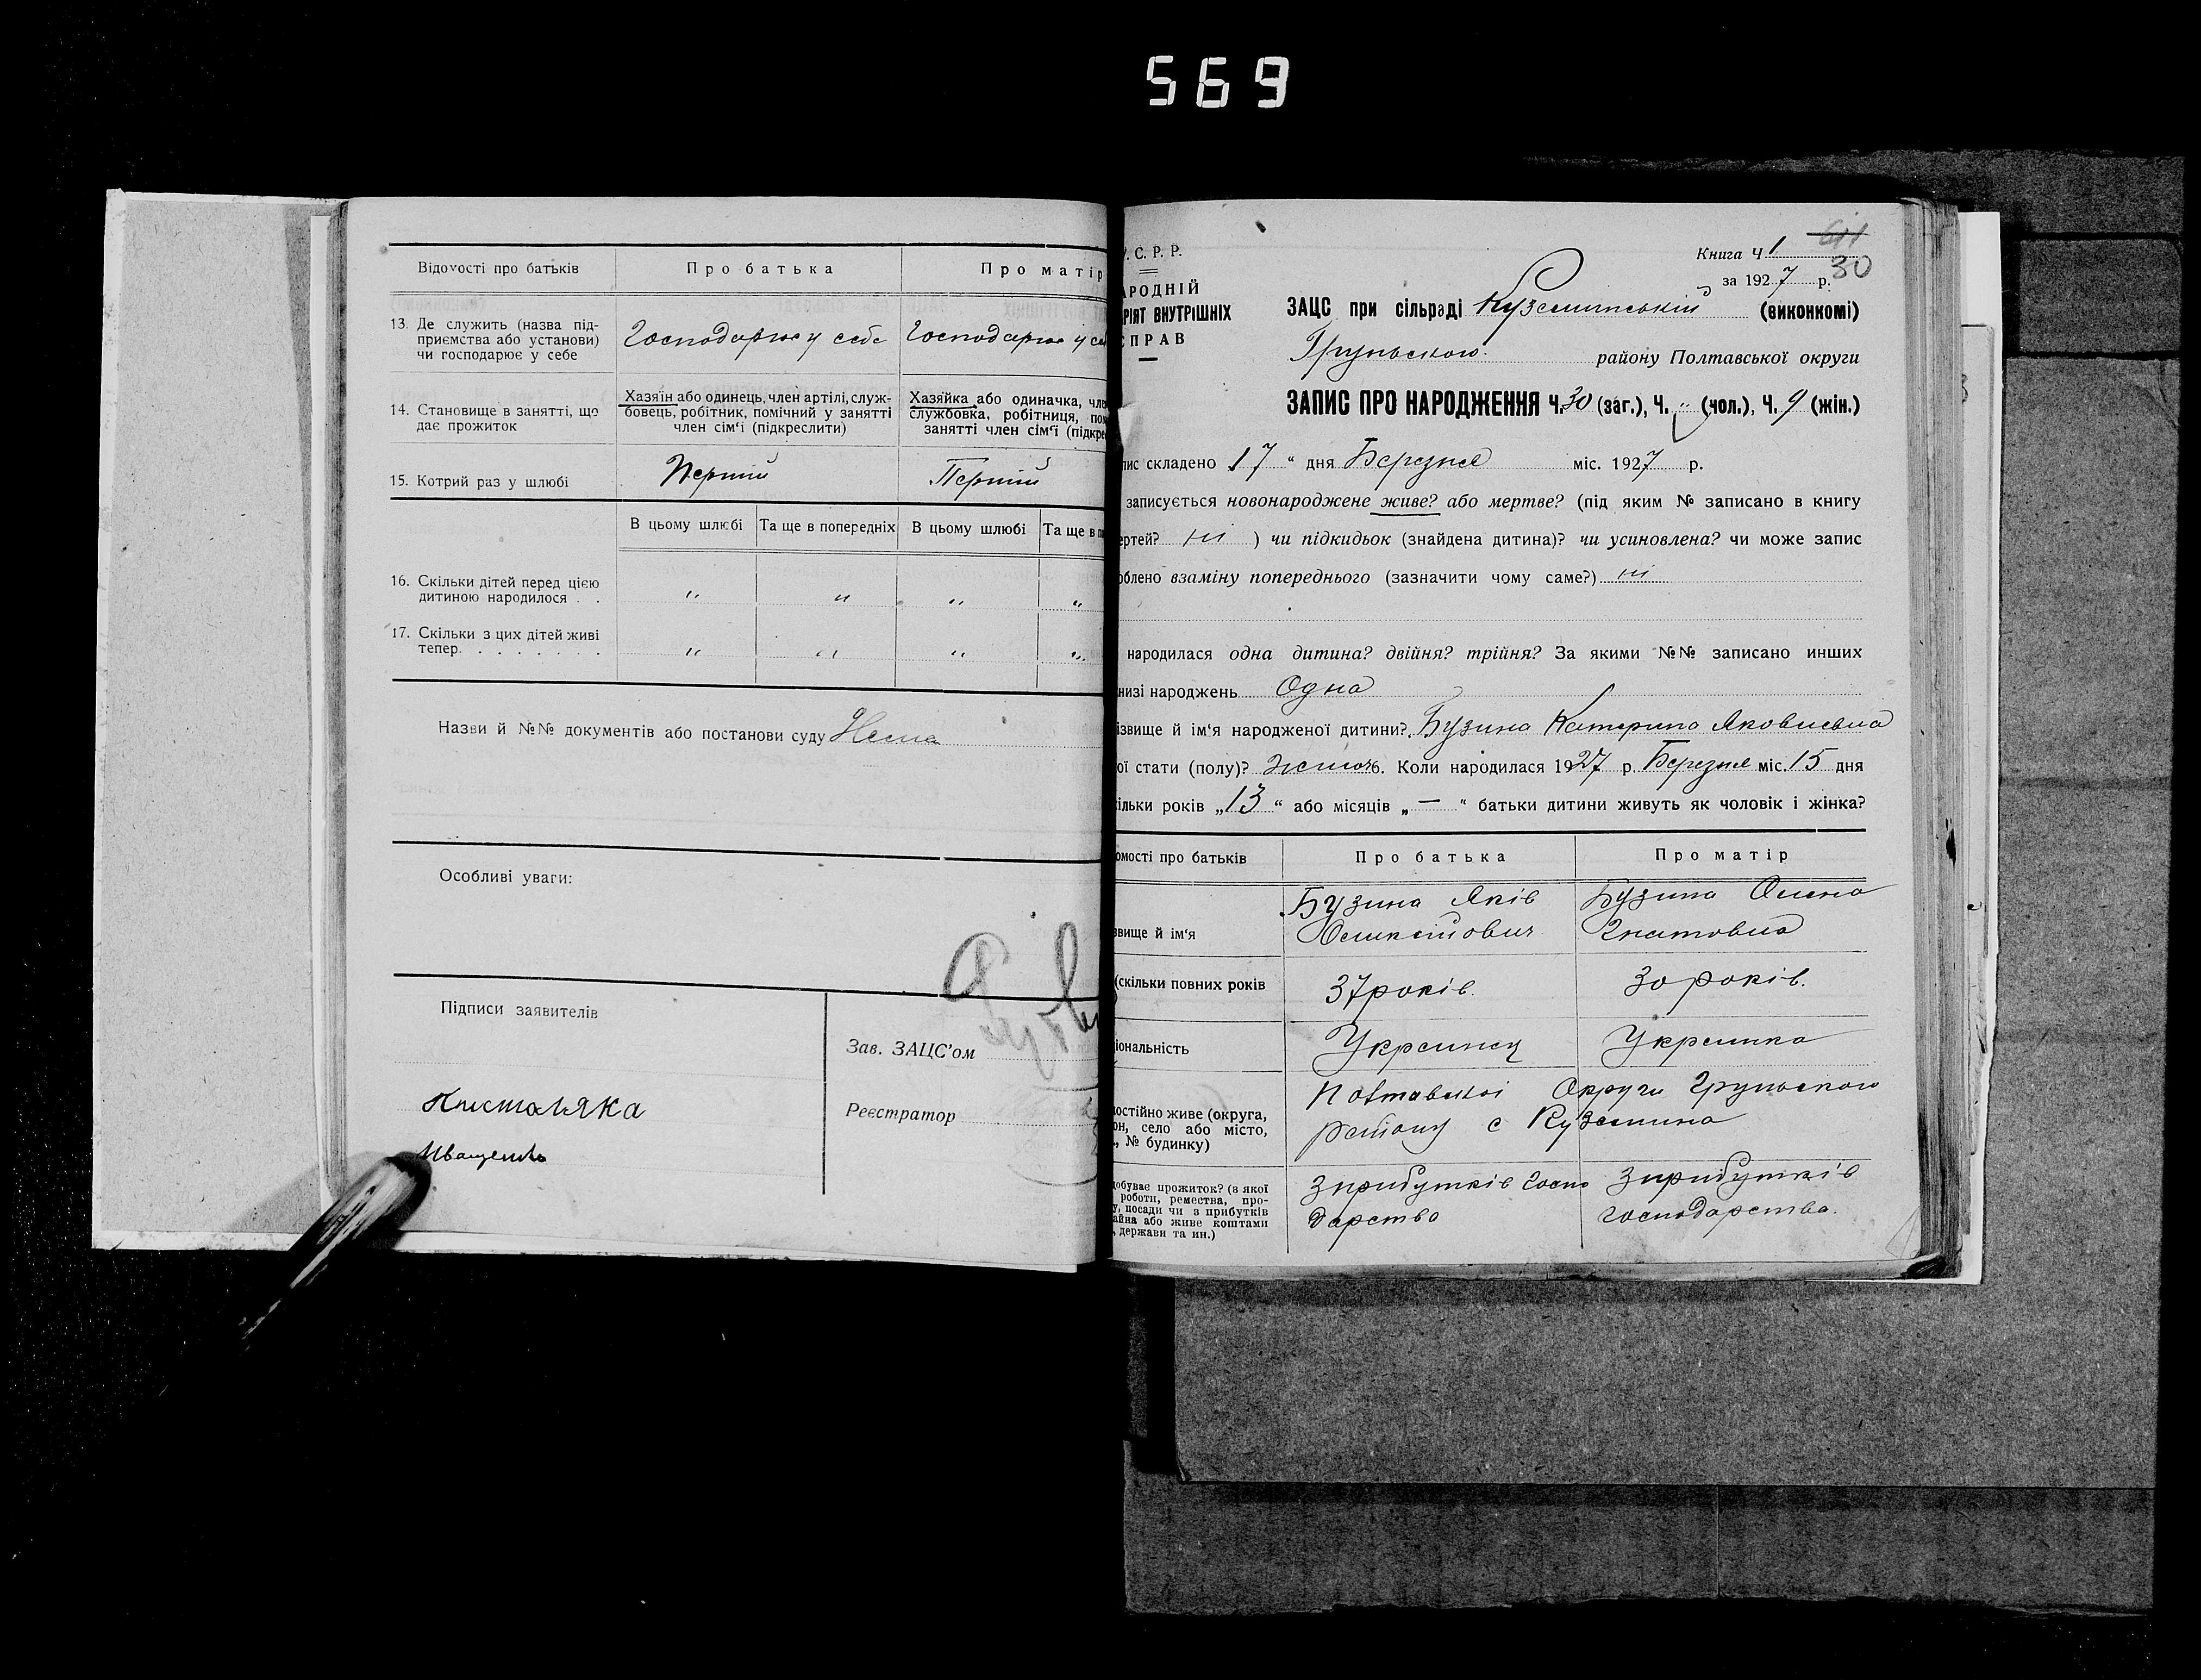 569
Відомості про батьків
Про батька
Про матір
13. Де служить (назва під-
приємства або установи)
чи господарює у себе
Господарює у себе
Господарює у се
14. Становище в занятті, що
дає прожиток
Хазяїн або одинець, член артілі, служ-
бовець, робітник, помічний у занятті
член сім'ї (підкреслити)
Хазяйка або одиначка, чле
службовка, робітниця, пом
занятті член сім'ї (підкре
15. Котрий раз у шлюбі
Перший
Перший
В цьому шлюбі
Та ще в попередніх
В цьому шлюбі
Та ще в п
16. Скільки дітей перед цією
дитиною народилося . .
" " " "
17. Скільки з цих дітей живі
тепер. . . . . . . .
" " " "
Назви й №№ документів або постанови суду Нема
Особливі уваги:
Підписи заявителів
Зав. ЗАЦС'ом
Реєстратор
Іващенко
У. С. Р. Р.
АРОДНІЙ
РІЯТ ВНУТРІШНІХ
СПРАВ
Книга Ч 1
30
за 1927 р.
ЗАЦС при сільраді Куземинський (виконкомі)
Груньського району Полтавської округи
ЗАПИС ПРО НАРОДЖЕННЯ Ч. 30 (заг.), Ч. " (чол.), Ч. 9 (жін.)
пис складено 17 " дня Березня міс. 1927 р.
записується новонароджене живе? або мертве? (під яким № записано в книгу
ертей? ні ) чи підкидьок (знайдена дитина)? чи усиновлена? чи може запис
облено взаміну попереднього (зазначити чому саме?) ні
народилася одна дитина? двійня? трійня? За якими №№ записано инших
низі народжень Одна
ізвище й ім'я народженої дитини? Бузина Катерина Яковлевна
ої стати (полу)? жіноч. Коли народилася 1927 р. Березня міс. 15 дня
ільки років „13" або місяців „—" батьки дитини живуть як чоловік і жінка?
омості про батьків
Про батька
Про матір
звище й ім'я
Бузина Яків
Олексійович
Бузина Олена
Гнатовна
(скільки повних років
37 років.
30 років.
іональність
Українец
Украинка
постійно живе (округа,
он, село або місто,
., № будинку)
Полтавської Округи Груньского
району с Куземина
добуває прожиток? (з якої
роботи, ремества, про-
у, посади чи з прибутків
айна або живе коштами
, держави та ин.)
З прибутків госпо
дарства
З прибутків
господарства.